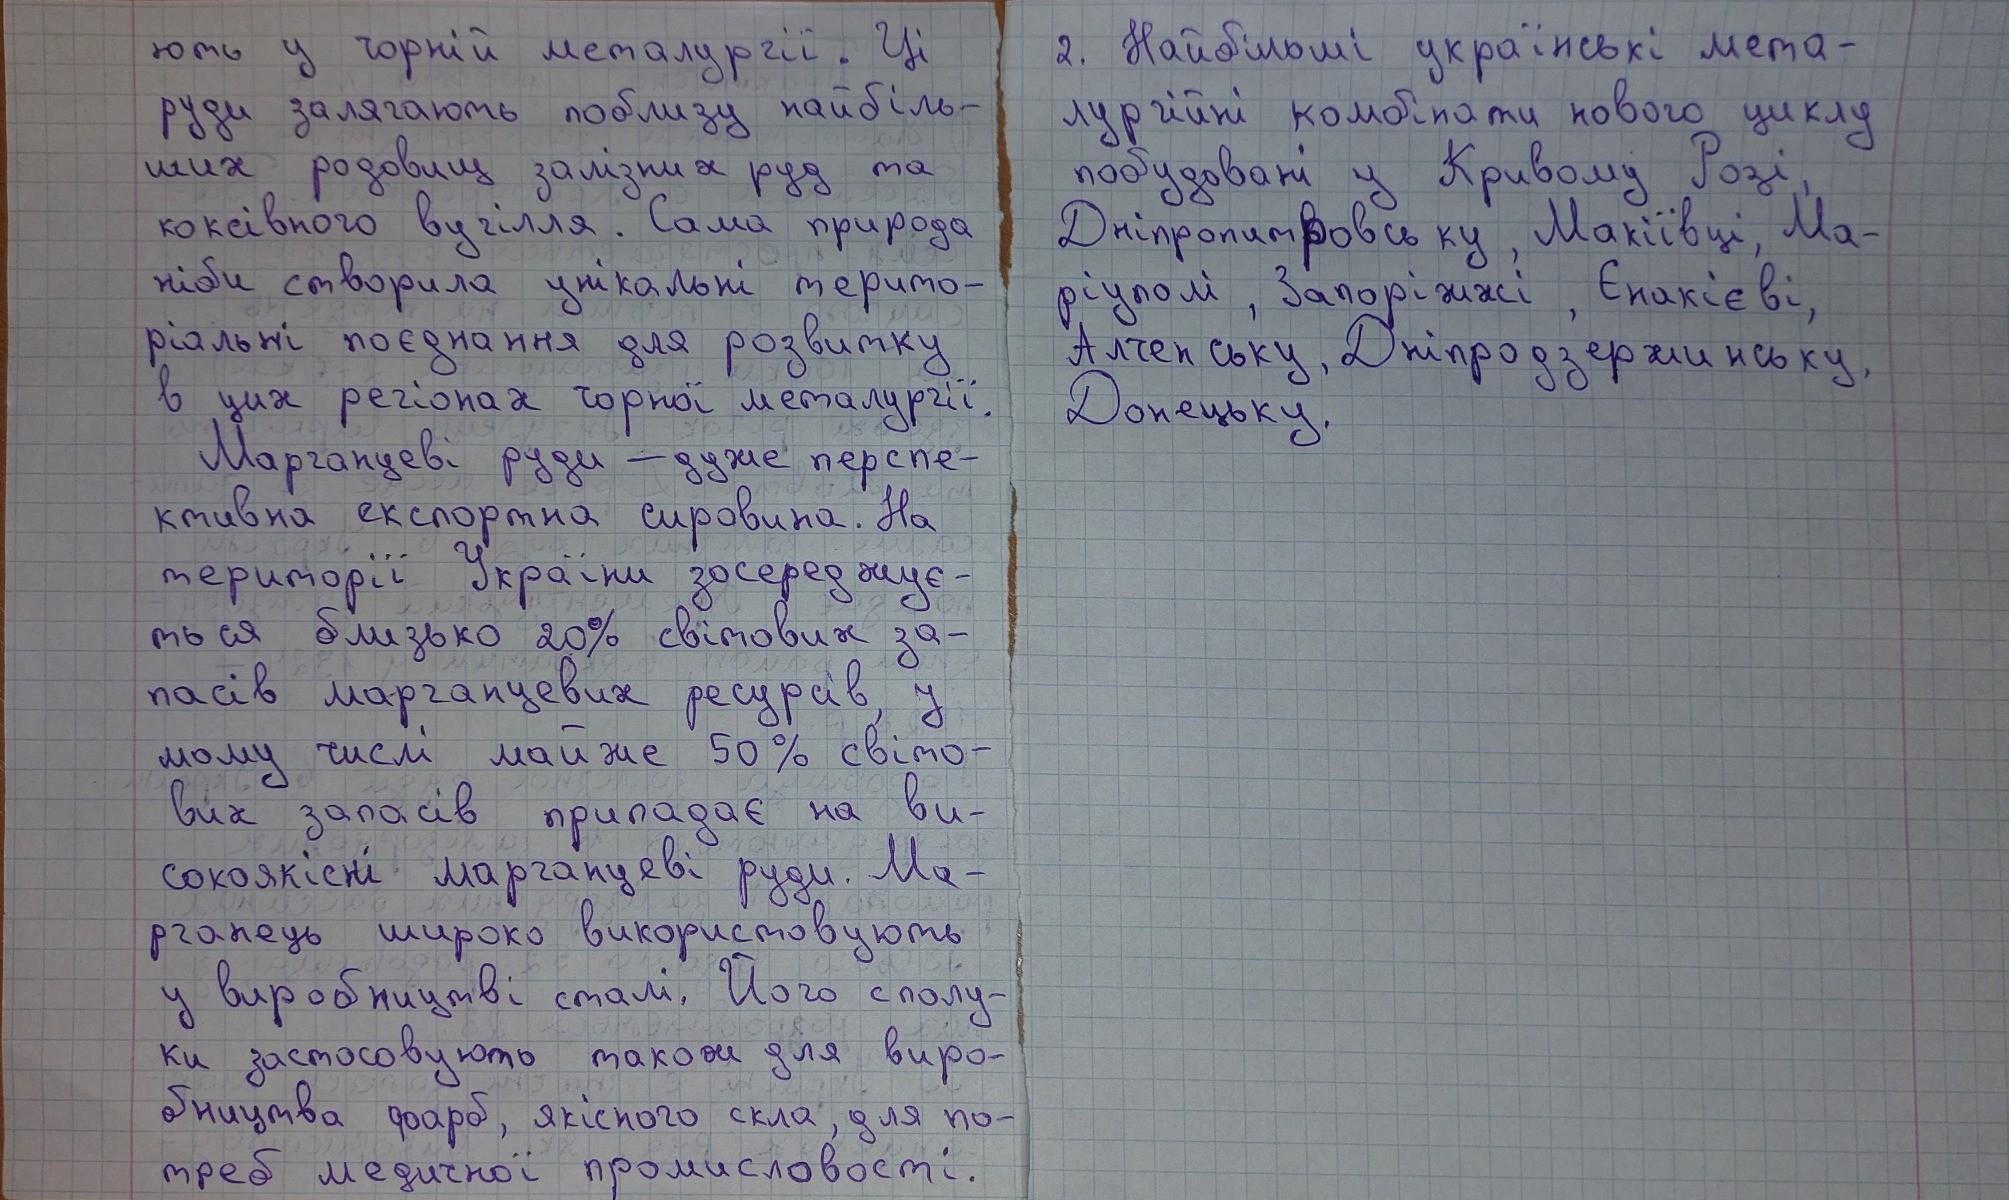 ють у чорній металургії. Ці
руди залягають поблизу найбіль-
ших родовищ залізних руд та
коксівного вугілля. Сама природа
ніби створила унікальні терито-
ріальні поєднання для розвитку
в цих регіонах чорної металургії.
Марганцеві руди – дуже перспе-
ктивна експортна сировина. На
території України зосереджує-
ться близько 20% світових за-
пасів марганцевих ресурсів, у
тому числі майже 50% світо-
вих запасів припадає на ви-
сокоякісні марганцеві руди. Ма-
рганець широко використовують
у виробництві сталі. Його сполу-
ки застосовують також для виро-
бництва фарб, якісного скла, для по-
треб медичної промисловості.
2. Найбільші українські мета-
лургійні комбінати нового циклу
побудовані у Кривому Розі,
Дніпропитровську, Макіївці, Ма-
ріуполі, Запоріжжі, Єнакієві,
Алченську, Дніпродзержинську,
Донецьку.